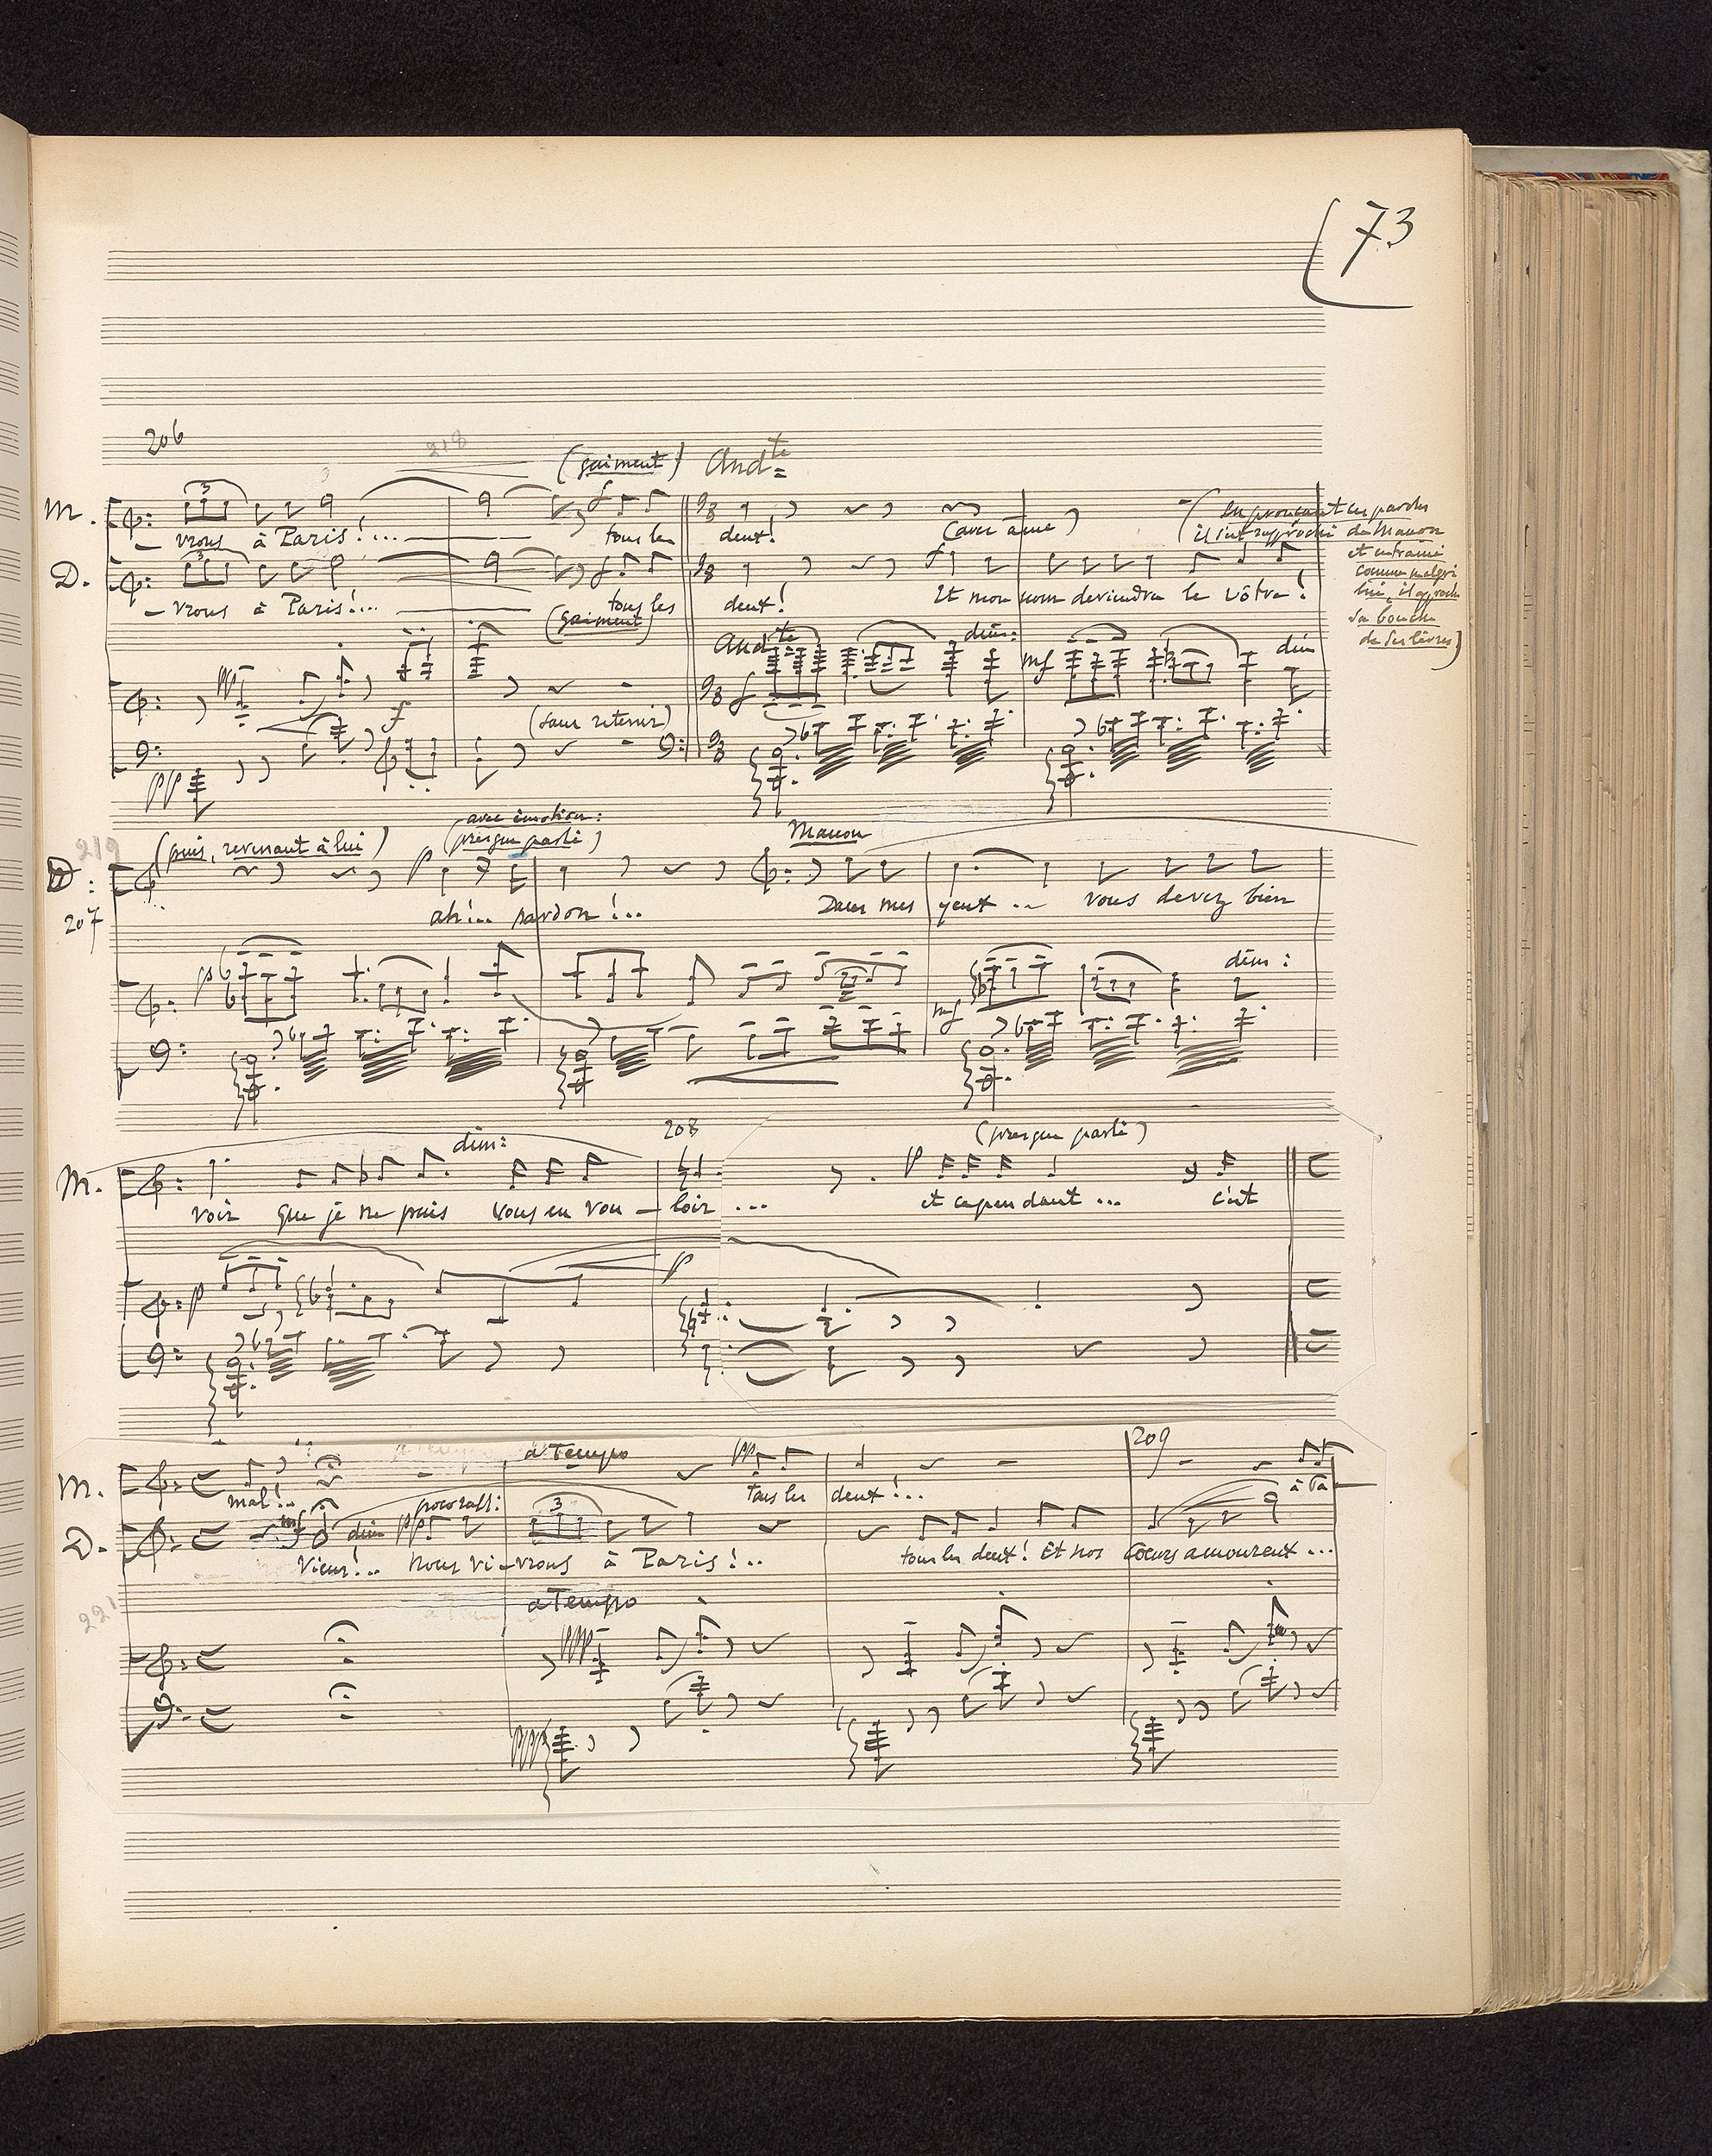 73
206
218
(gaiment) And^te
M.
3
– vrons à Paris!... tous les deux! (avec âme)
(en prononçant ces paroles
il s'est rapproché de Manon
et entraîné
comme malgré
lui, il approche
sa bouche
de ses lèvres)
D.
3
– vrons à Paris!... tous les deux! Et mon nom deviendra le vôtre!
(gaiment)
And^te dim:
ppp f f mf dim
(sans retenir)
pp
219
(puis, revenant à lui)
avec émotion:
(presque parlé)
Manon
D:
207
p
ah!.. pardon!.. Dans mes yeux... vous devez bien
p mf dim:
dim: 208 (presque parlé)
M.
p
voir que je ne puis vous en vou – loir ... et cependant ... c'est
p p
a Tempo pp 209
M.
mal!.. tous les deux!... à Pa
poco rall:
D.
mf dim pp 3
Vieux!.. nous vi – vrons à Paris!.. tous les deux! Et nos coeurs amoureux ...
221
a Tempo
pppp
pppp